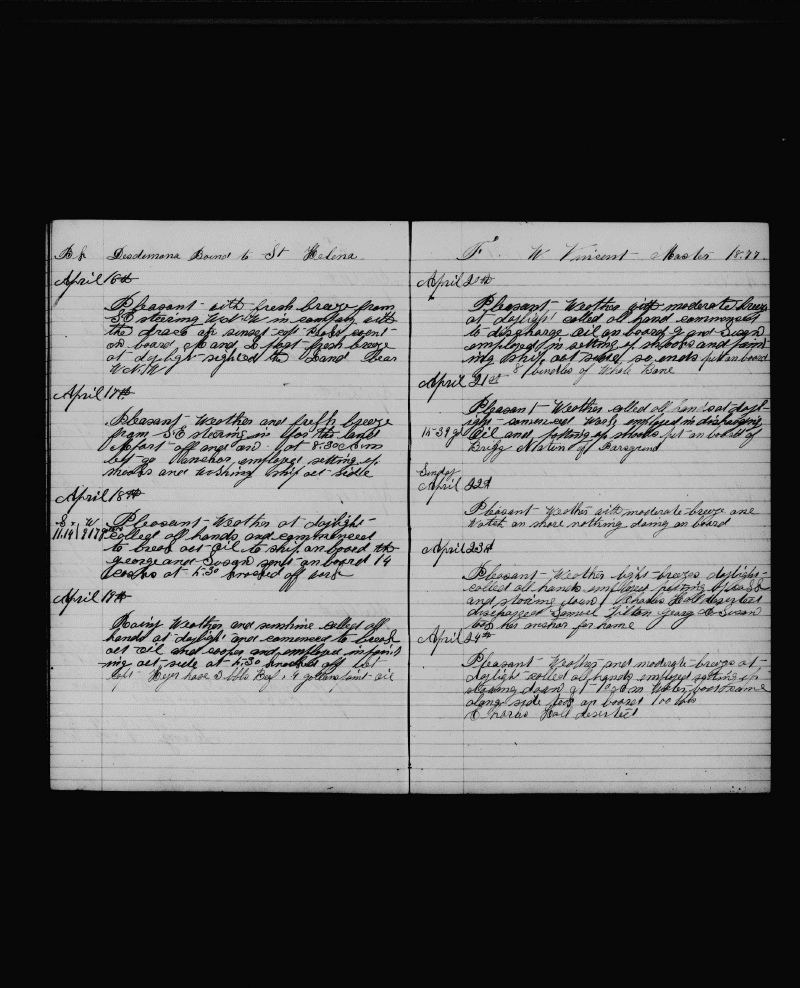 Bk Desdemona Bound to St Helena
April 16th
Pleasant with fresh breeze from
SE steering W in company with
the at sunset
on board and fast fresh breeze
at daylight sighted the Land Bear
WNW
April 17th
Pleasant Weather and fresh breeze
from SE steering in for the land
off and on at 8.30 am
let go anchor employed setting up
shooks and ship out side
April 18th
Pleasant Weather at daylight
called all hands and commenced
to break out oil to ship on board the
George and Susan sent on board 14
Casks at 4:30 knocked off work
April 19th
Weather and sunshine called all
hands at daylight and commenced to break
out oil and cooper and employed in paint
ing out side at 4:30 knocked off
have 2 bbls Beef 4 gallons paint oil
F W Vincent Master 1877
April 20th
Pleasant Weather with moderate breeze
at daylight called all hands commenced
to discharge oil on board G and Susan
employed in setting up shooks and paint
ing ship out side so ends put on board
8 bundles of Whale Bone
April 21st
Pleasant Weather called all hands at dayl-
ight commenced Work employed in discharging
15-39 gl Oil and setting up shooks put on board of
Sunday
April 22d
Pleasant Weather with moderate breeze one
Watch on shore nothing doing on board
April 23d
Pleasant Weather light breezes daylight
called all hands employed putting up
and stowing down Charles Hall deserted
discharged Samuel Tilton George & Susan
took her anchor for home
April 24th
Pleasant Weather and moderate breeze at
daylight called all hands employed setting up
stowing down at 10 am Water boat came
along side took on board 100 bbls
Charles Hall deserted